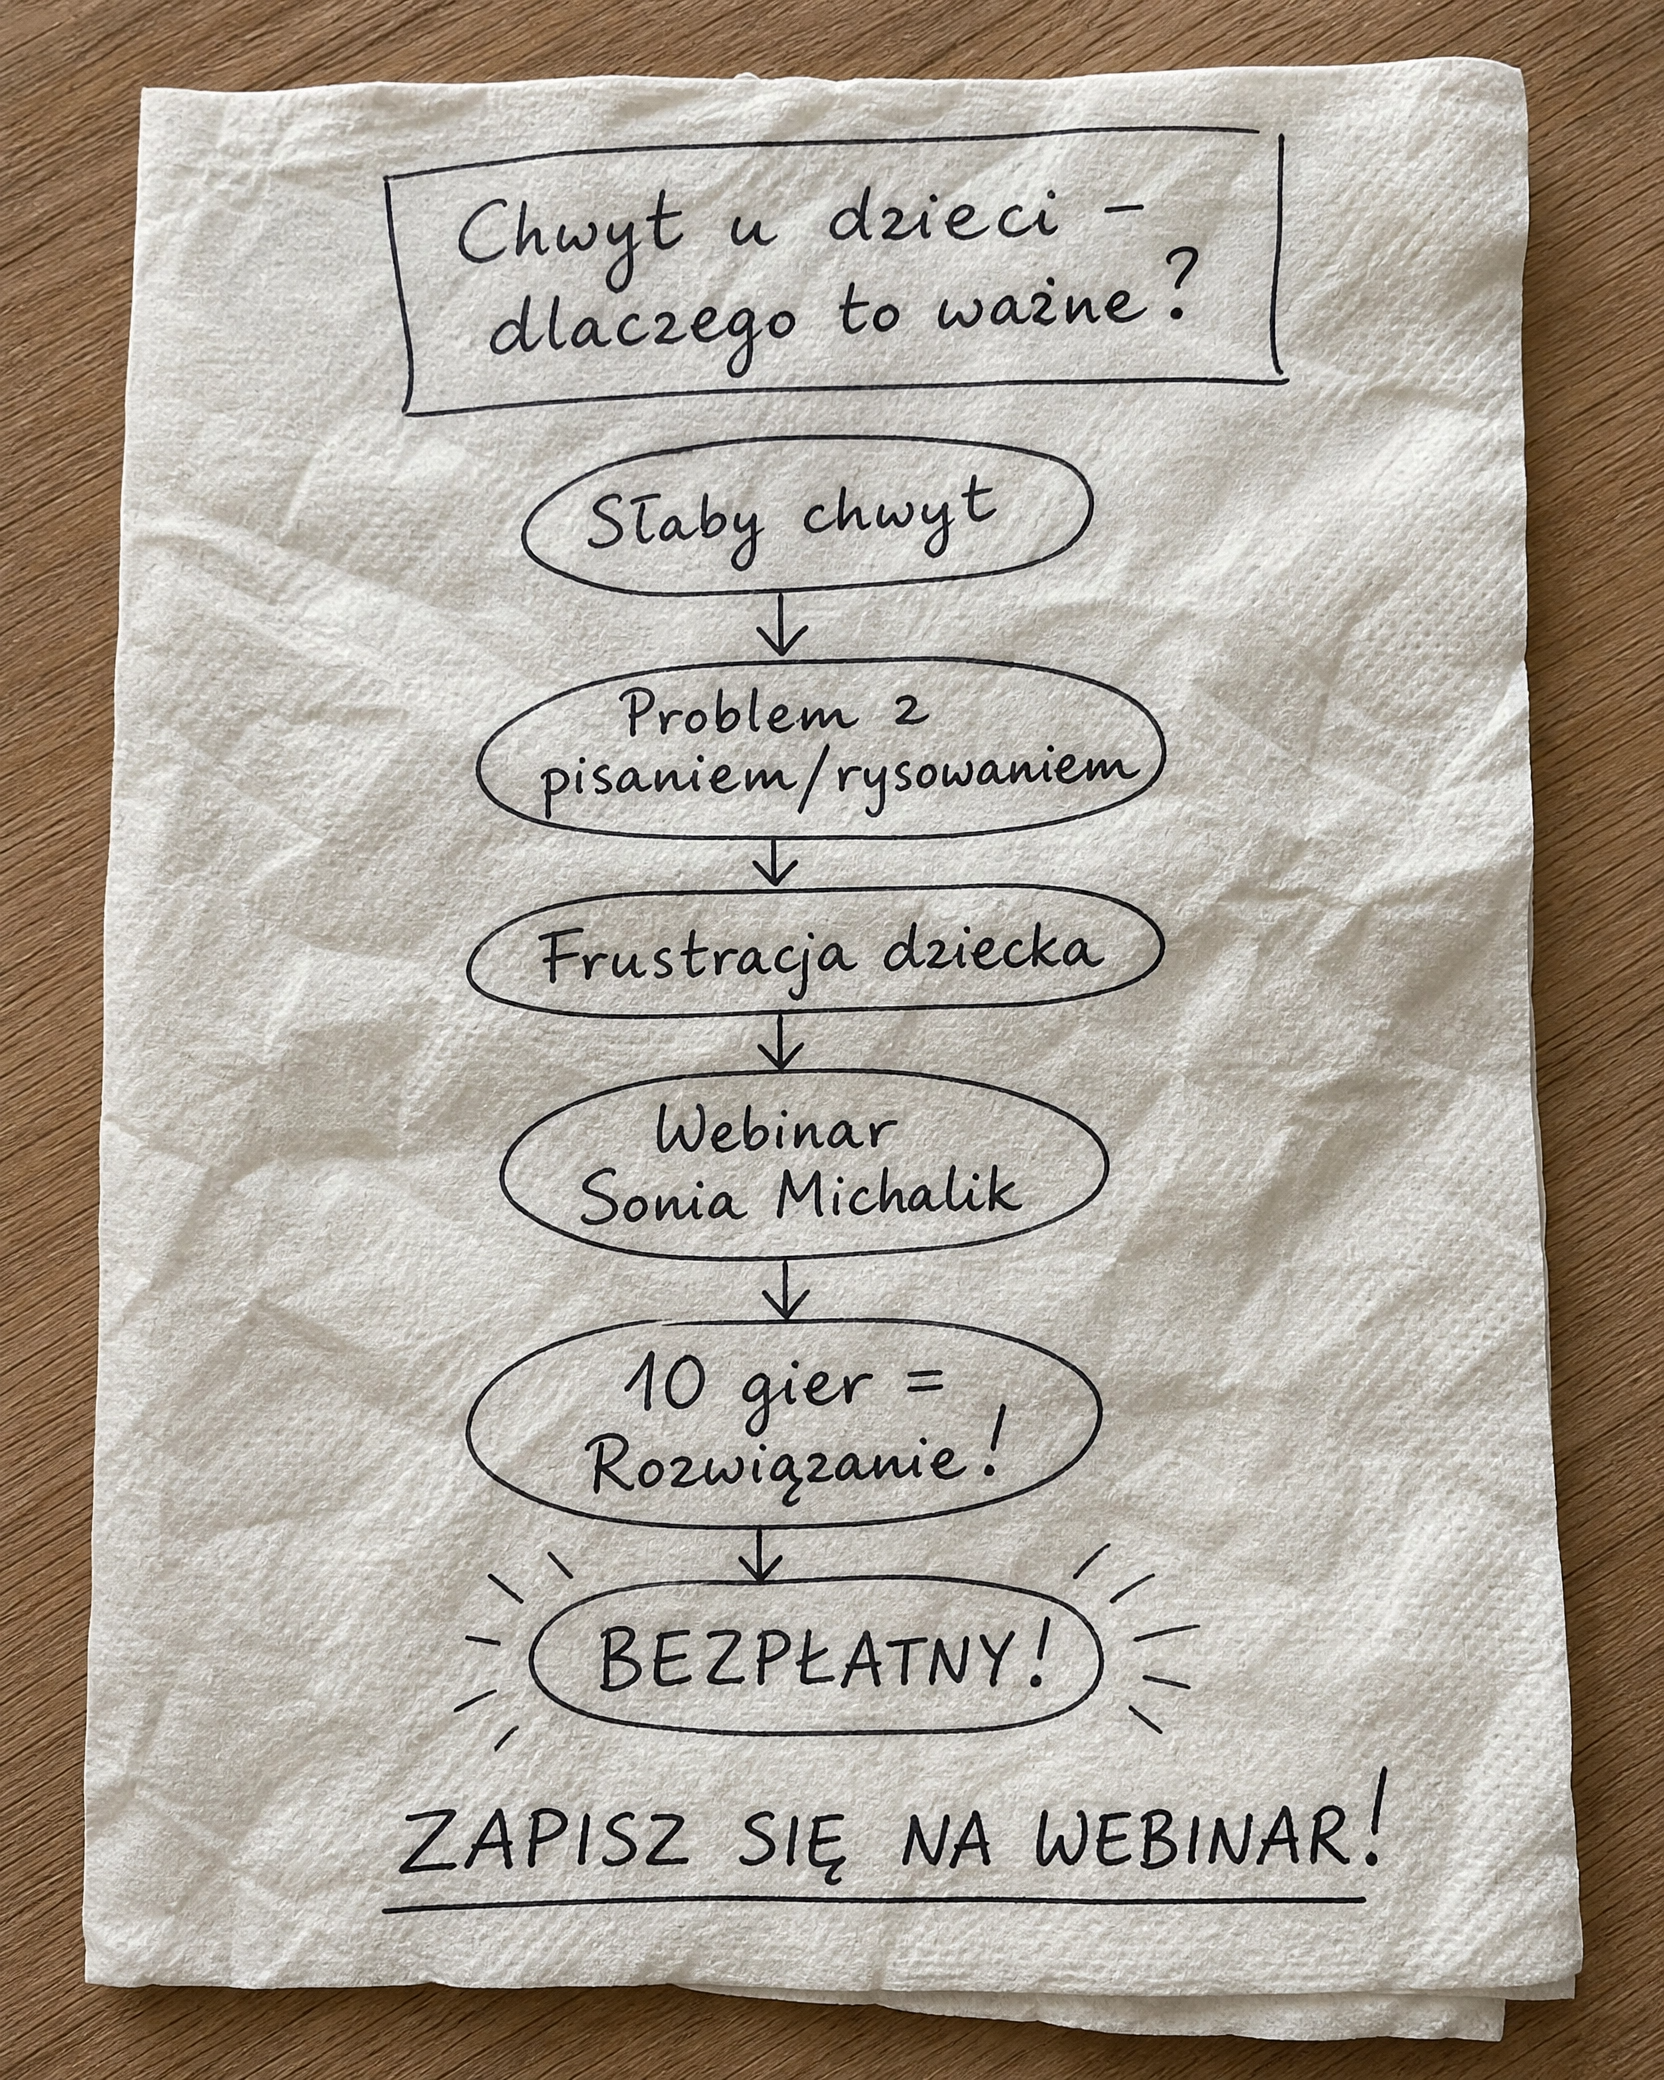 Chwyt u dzieci -
dlaczego to ważne?
Słaby chwyt
Problem z
pisaniem/rysowaniem
Frustracja dziecka
Webinar
Sonia Michalik
10 gier =
Rozwiązanie!
BEZPŁATNY!
ZAPISZ SIĘ NA WEBINAR!